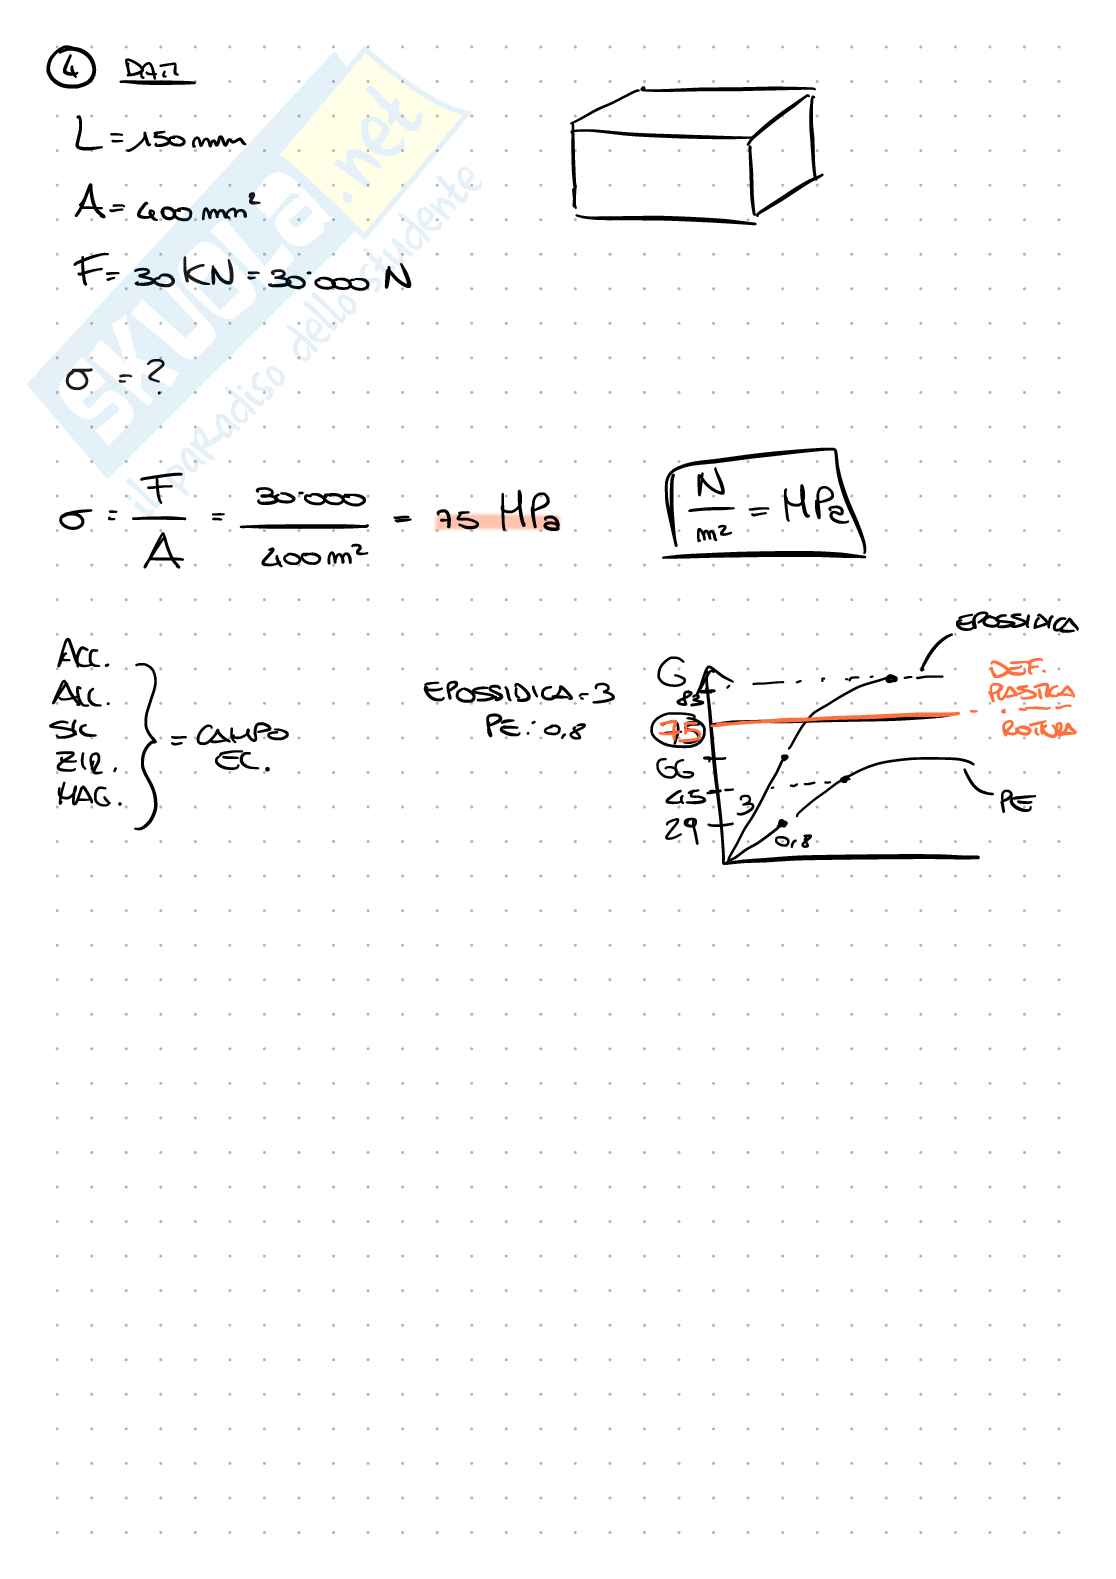 4 DATI
L = 150 mm
A = 400 mm²
F = 30 KN = 30·000 N
σ = ?
σ = F/A = 30·000 / 400 m² = 75 MPa
N/m² = MPa
ACC.
ALL.
SIC
ZIR.
MAG.
= CAMPO EC.
EPOSSIDICA = 3
PE: 0,8
EPOSSIDICA
DEF.
PLASTICA
ROTURA
83
75
66
45
29
3
0,8
PE
SKUOLA.net
il paradiso dello studente